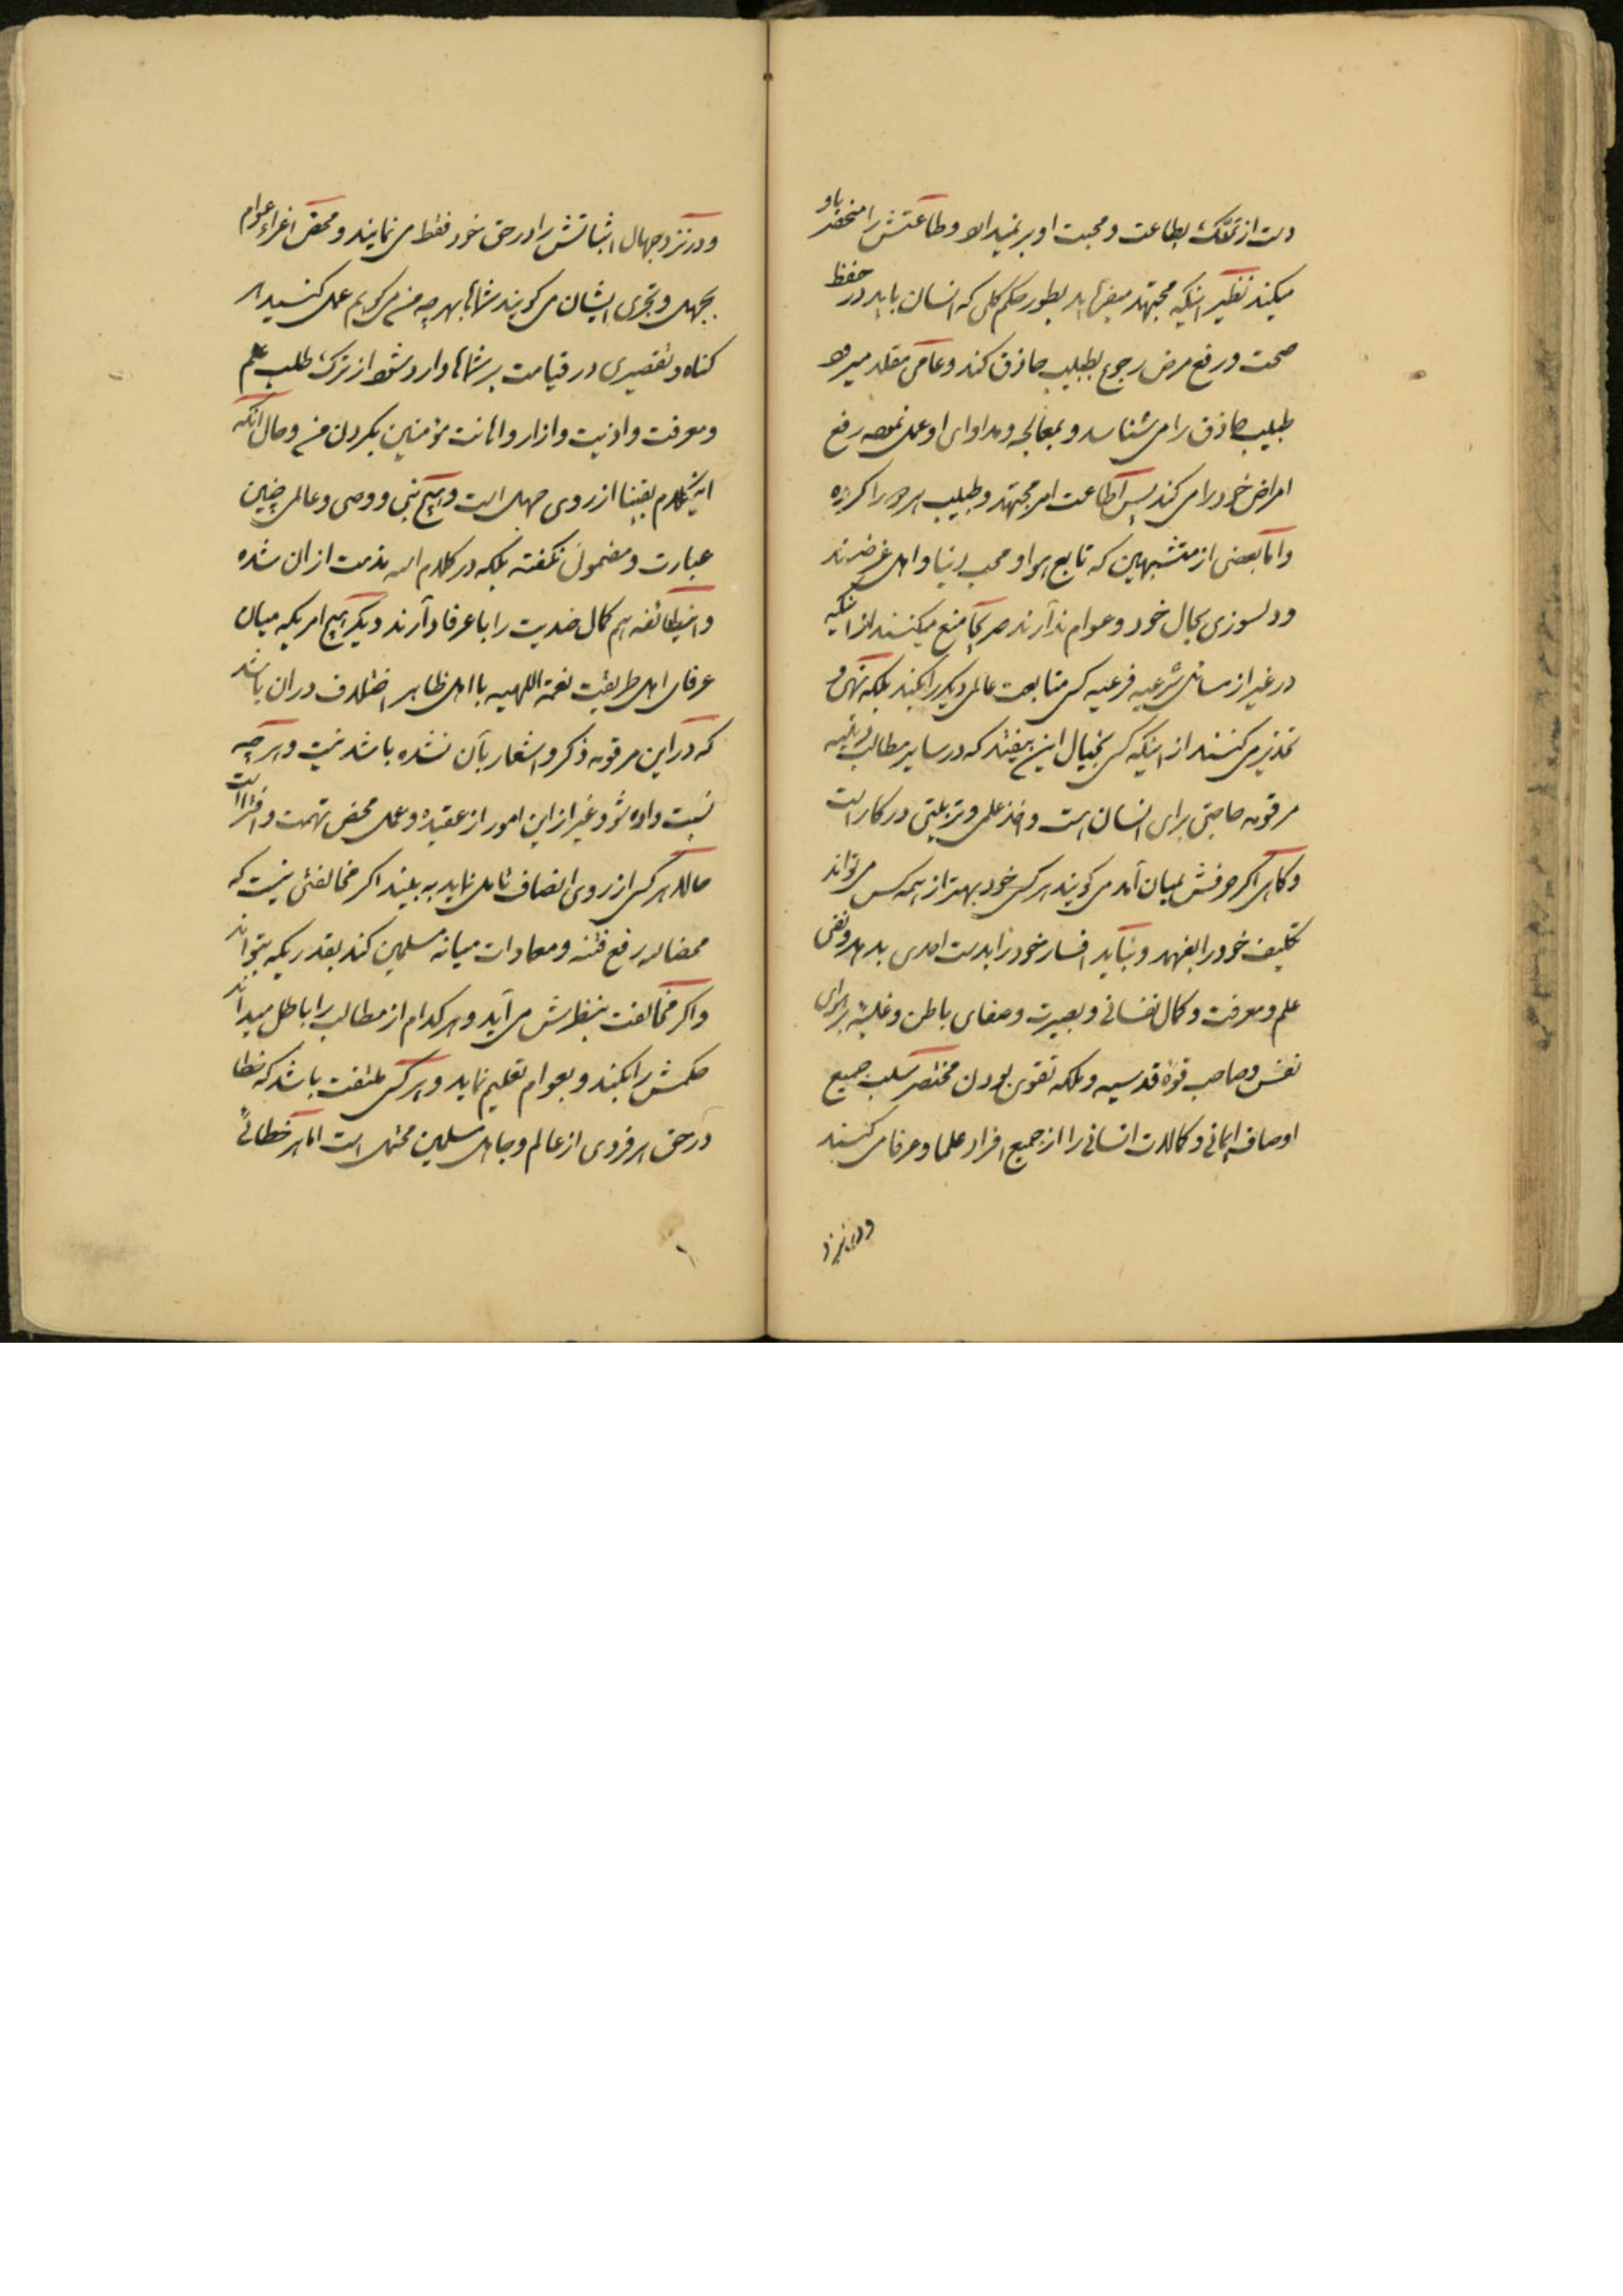 دست از تمسّک بطاعت و محبت او برنمیدارد و طاعتش را منحصر باو
میکند نظیر اینکه مجتهد میفرماید بطور حکم کلی که انسان باید در حفظ
صحت و رفع مرض رجوع بطبیب حاذق کند و عامی مقلد میرود
طبیب حاذق را می شناسد و بمعالجه و مداوای او عمل نموده رفع
امراض خود را می کند پس اطاعت امر مجتهد و طبیب هر دو را کرده
و اما بعضی از متشبهین که تابع هوا و محب دنیا و اهل غرضند
و دلسوزی بحال خود و عوام ندارند صریحاً منع میکنند از اینکه
در غیر از مسائل شرعیه فرعیه کسی متابعت عالم دیگر را بکند بلکه نهی و
تحذیر می کنند از اینکه کسی بخیال این بیفتد که در سایر مطالب دینیه
مرقومه حاجتی برای انسان هست و اخذ علمی و تربیتی در کار است
و گاهی اگر حرفش بمیان آمد می گویند هر کس خود بهتر از همه کس می تواند
تکلیف خود را بفهمد و نباید افسار خود را بدست احدی بدهد و نفی
علم و معرفت و کمال نفسانی و بصیرت و صفای باطن و غلبه بر هوای
نفس و صاحب قوه قدسیه و ملکه تقوی بودن مختصر سلب جمیع
اوصاف ایمانی و کمالات انسانی را از جمیع افراد علما و عرفا می کنند
و در نزد
و در نزد جهال اثباتش را در حق خود فقط می نمایند و محض اغراء عوام
بجهل و تجری ایشان می گویند شماها بهر چه من می گویم عمل کنید هر
گناه و تقصیری در قیامت بر شماها وارد شود از ترک طلب علم
و معرفت و اذیت و ازار و اهانت مؤمنین بگردن من و حال آنکه
این کلام یقینا از روی جهل است و هیچ نبی و وصی و عالمی چنین
عبارت و مضمون نگفته بلکه در کلام الله مذمت از ان شده
و اینطائفه هم کمال ضدیت را با عرفا دارند دیگر هیچ امریکه میان
عرفای اهل طریقت نعمة اللهیه با اهل ظاهر اختلاف در ان باشد
که در این مرقومه ذکر و اشعار بآن نشده باشد نیست و هر چه
نسبت داده شود غیر از این امور از عقیده و عمل محض تهمت و افترا است
حالا هر کس از روی انصاف تامل نماید به بیند اگر مخالفتی نیست که
محضا لله رفع فتنه و معادات میانه مسلمین کند بقدریکه بتواند
و اگر مخالفت بنظرش می آید و هر کدام از مطالب را باطل میداند
حکمش را بکند و بعوام تعلیم نماید و هر کس ملتفت باشد که خطا
در حق هر فردی از عالم و جاهل مسلمین محتمل است اما هر خطائی